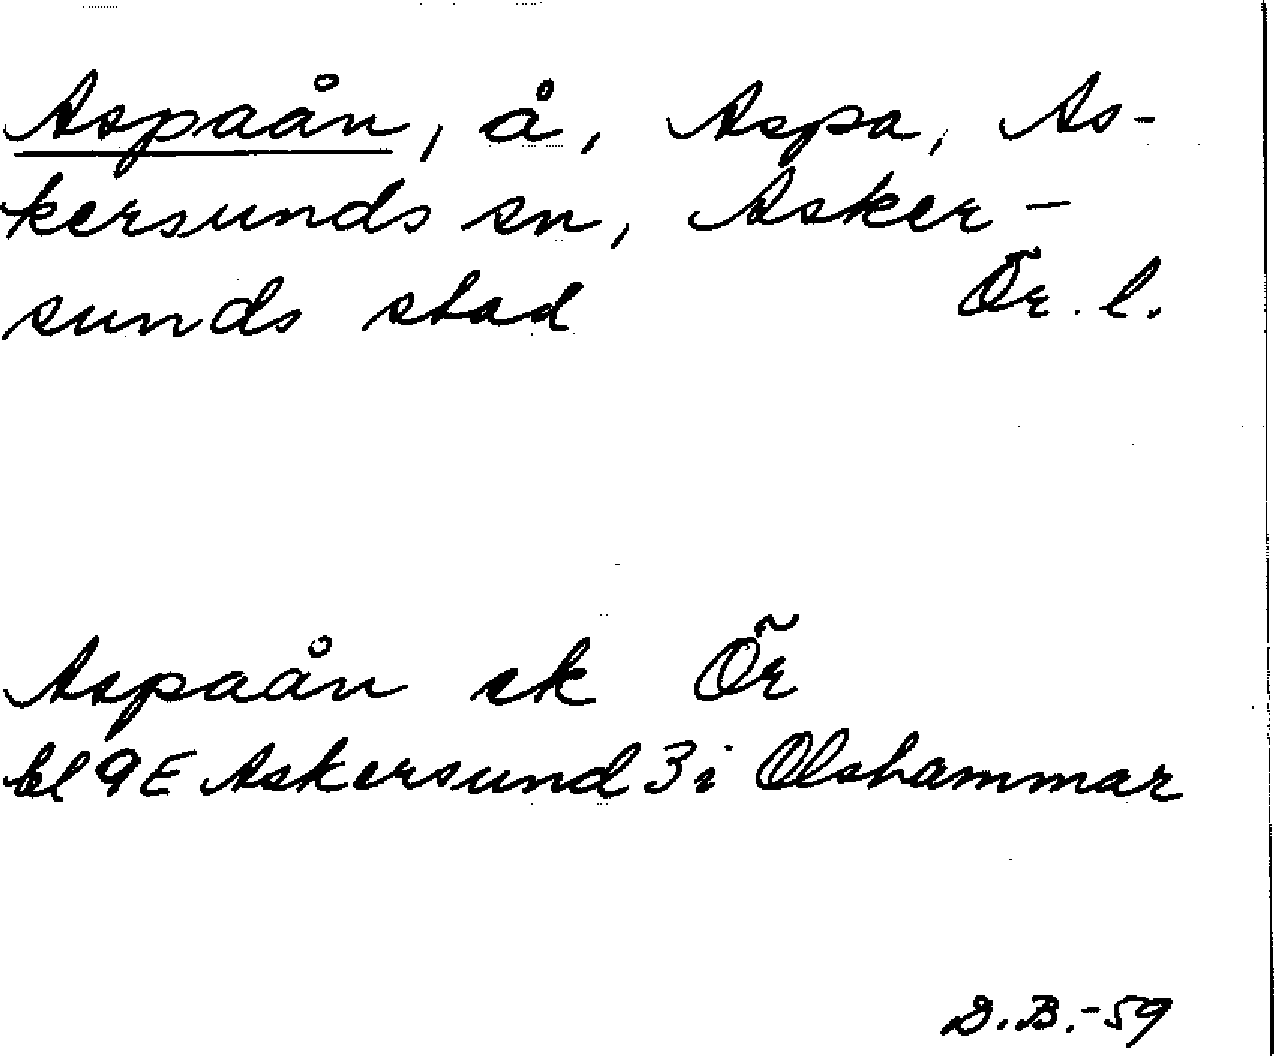 Aspaån, å, Aspa, As-
kersunds sn, Asker-
sunds stad Ör. l.
Aspaån ek Ör
bl 9E Askersund 3i Olshammar
D.B.-59